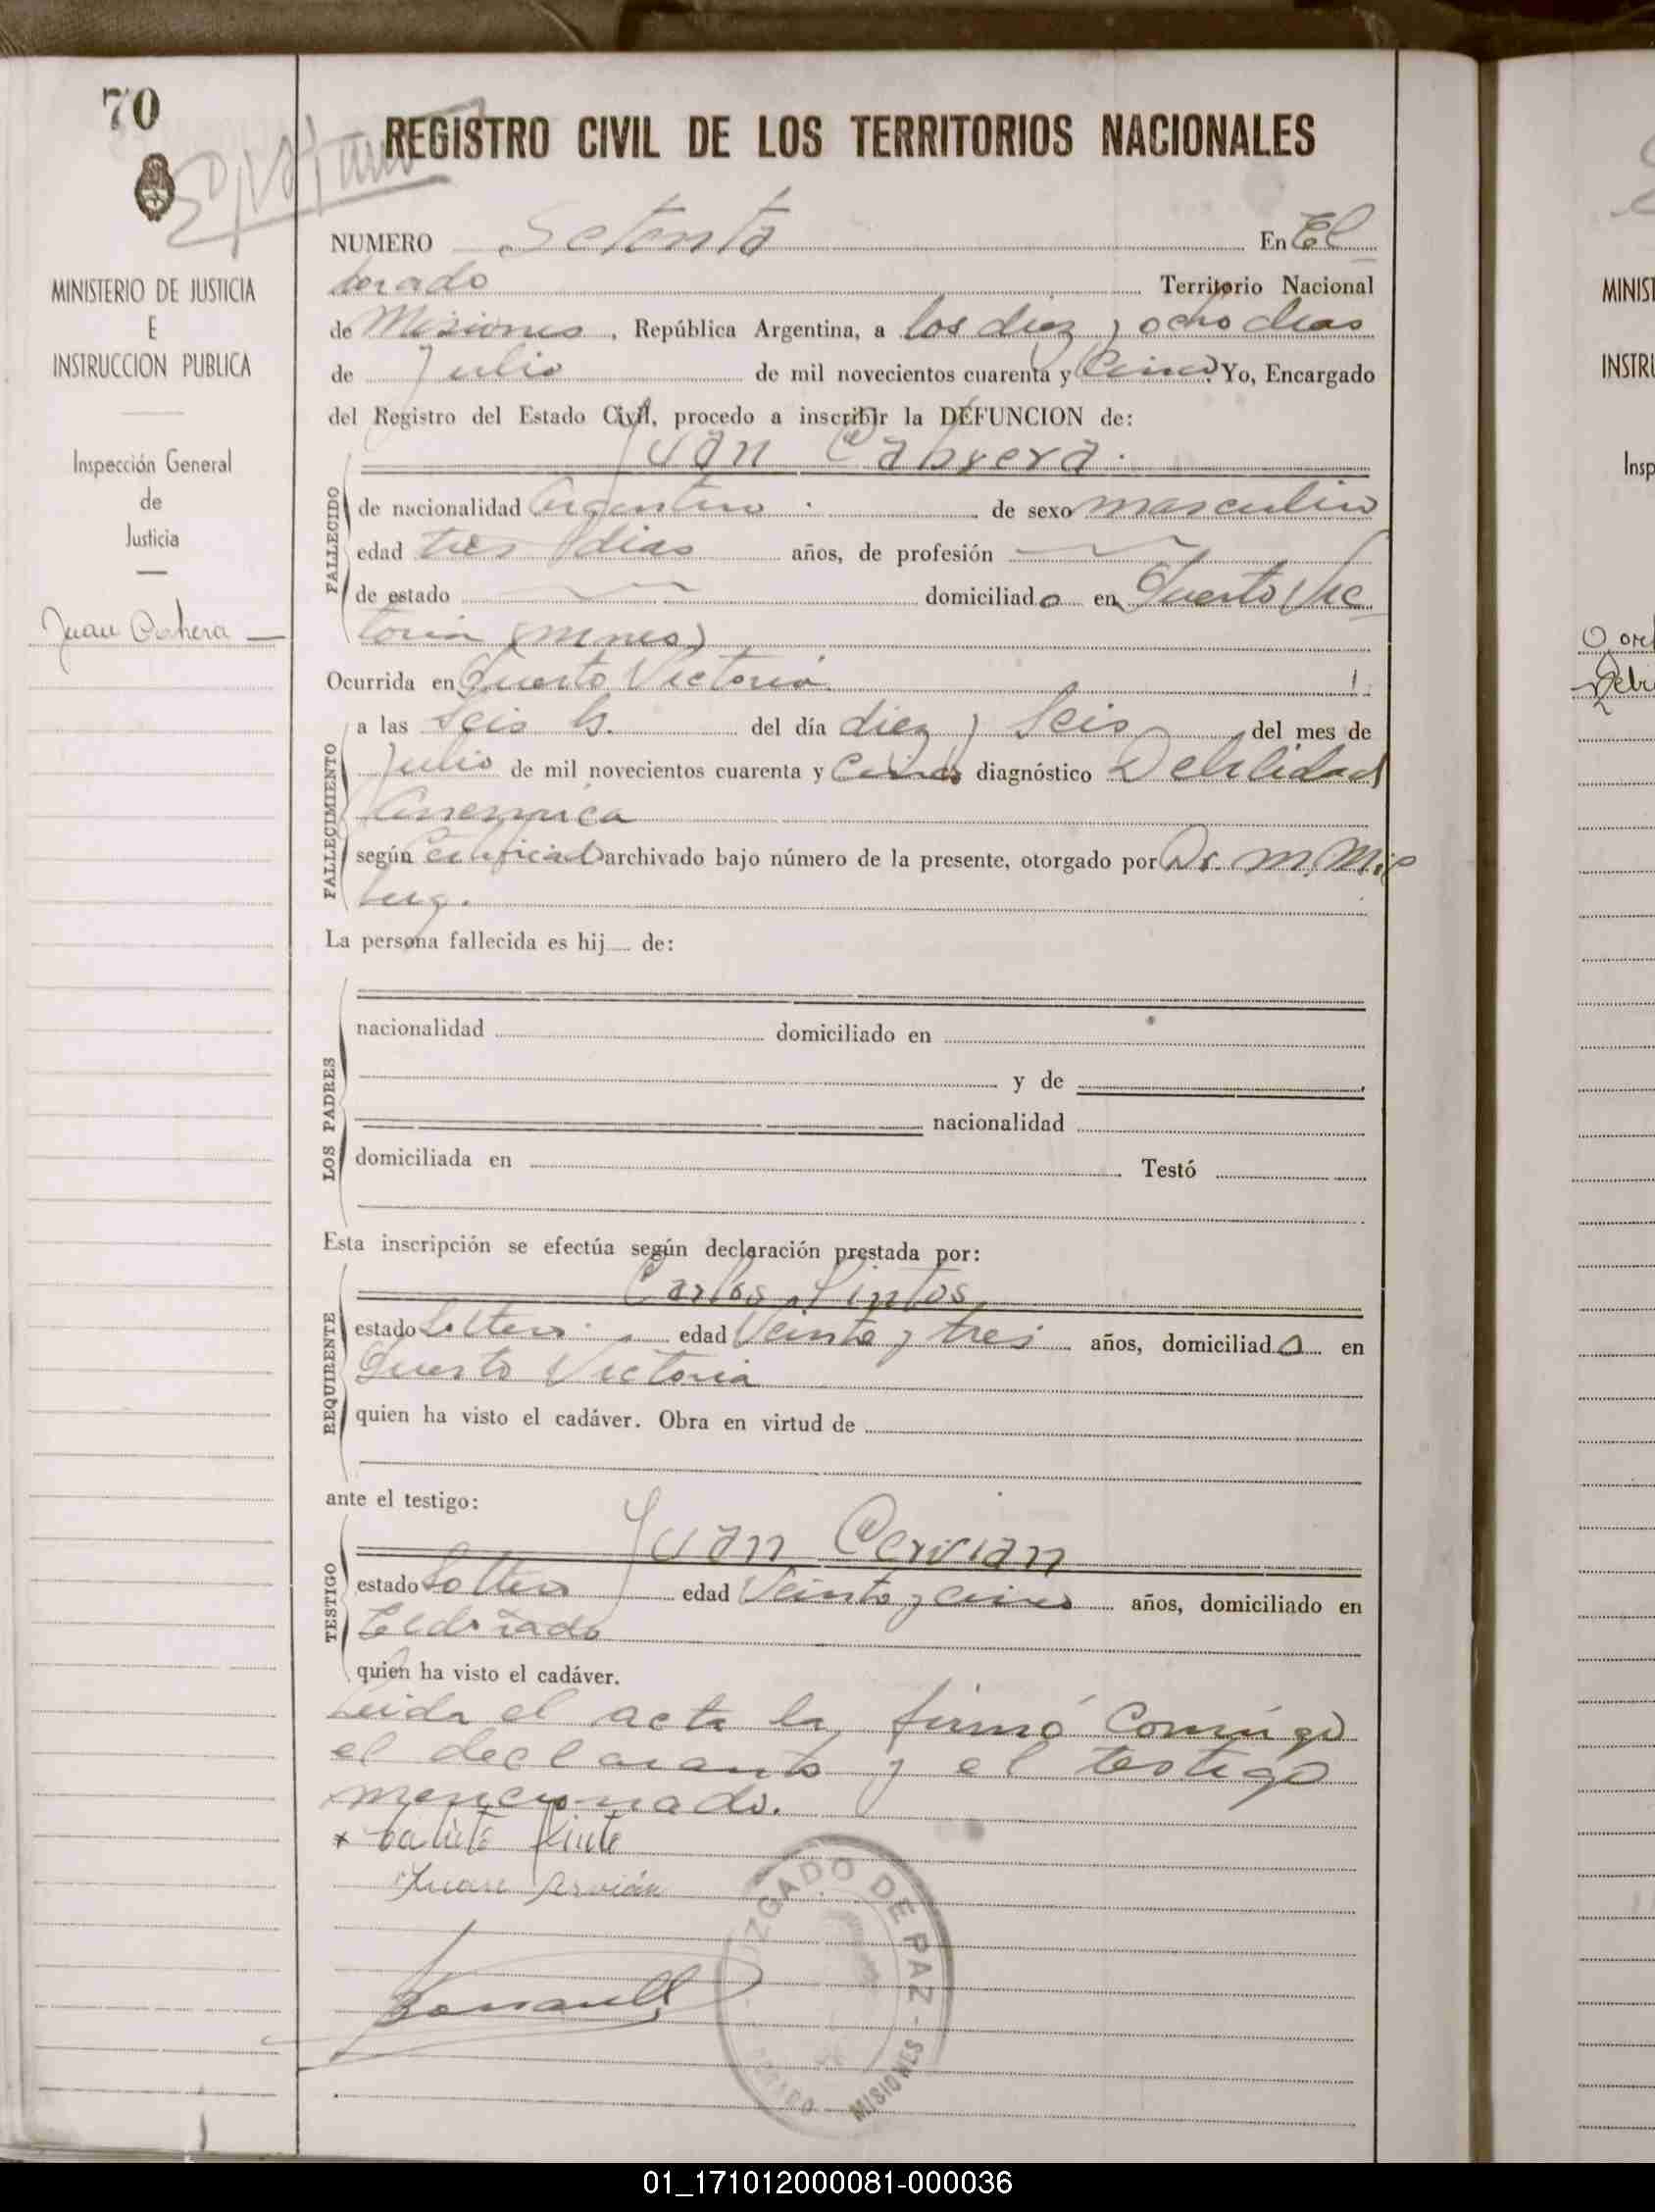 70
REGISTRO CIVIL DE LOS TERRITORIOS NACIONALES
MINISTERIO DE JUSTICIA
E
INSTRUCCION PUBLICA
Inspección General
de
Justicia
Juan Cabrera
NUMERO Setenta En El
dorado Territorio Nacional
de Misiones, República Argentina, a los diez y ocho dias
de Julio de mil novecientos cuarenta y Cinco. Yo, Encargado
del Registro del Estado Civil, procedo a inscribir la DEFUNCION de:
Juan Cabrera.
FALLECIDO
de nacionalidad Argentino. de sexo masculino
edad tres dias años, de profesión
de estado domiciliado en Puerto Vic
toria (Mnes)
Ocurrida en Puerto Victoria
FALLECIMIENTO
a las Seis hs. del día diez y Seis del mes de
Julio de mil novecientos cuarenta y Cinco diagnóstico Debilidad
Anemica
según Certificado archivado bajo número de la presente, otorgado por Dr. M.
La persona fallecida es hij de:
LOS PADRES
nacionalidad domiciliado en
y de
nacionalidad
domiciliada en Testó
Esta inscripción se efectúa según declaración prestada por:
Carlos Pintos
REQUIRENTE
estado Soltero. edad Veinte y tres años, domiciliado en
Puerto Victoria
quien ha visto el cadáver. Obra en virtud de
ante el testigo:
Juan Cervian
TESTIGO
estado Soltero edad Veinte y cinco años, domiciliado en
Eldorado
quien ha visto el cadáver.
Leida el acta la firmó Conmigo
el declarante y el testigo
mencionado.
Juan
JUZGADO DE PAZ - MISIONES
01_171012000081-000036